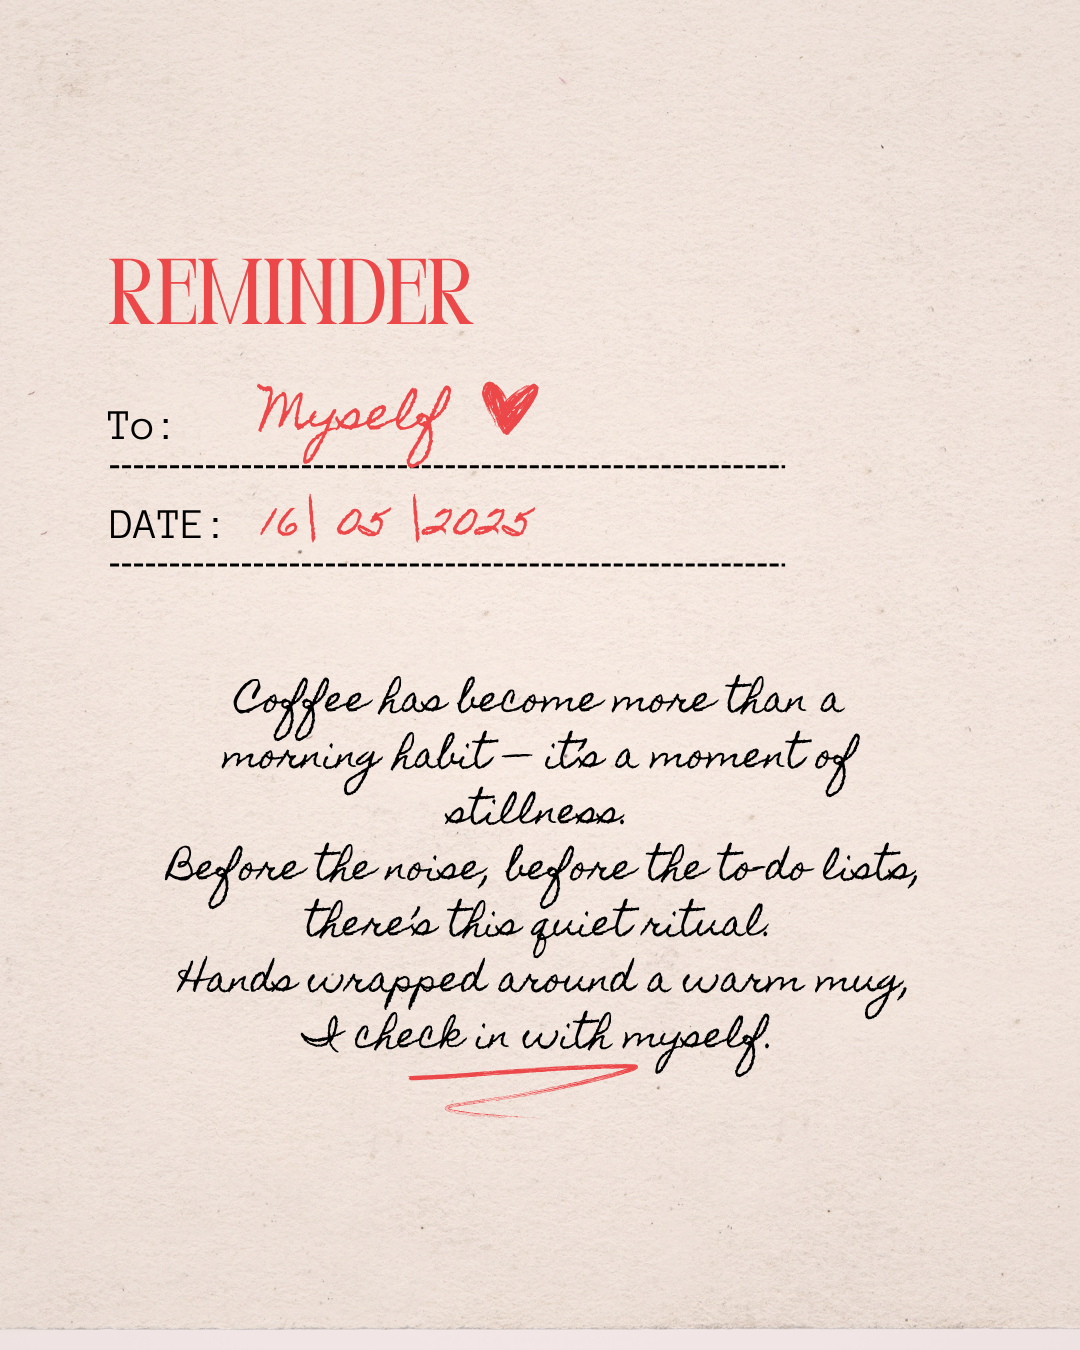 REMINDER
To: Myself
DATE: 16| 05 |2025
Coffee has become more than a
morning habit — it's a moment of
stillness.
Before the noise, before the to-do lists,
there's this quiet ritual.
Hands wrapped around a warm mug,
I check in with myself.